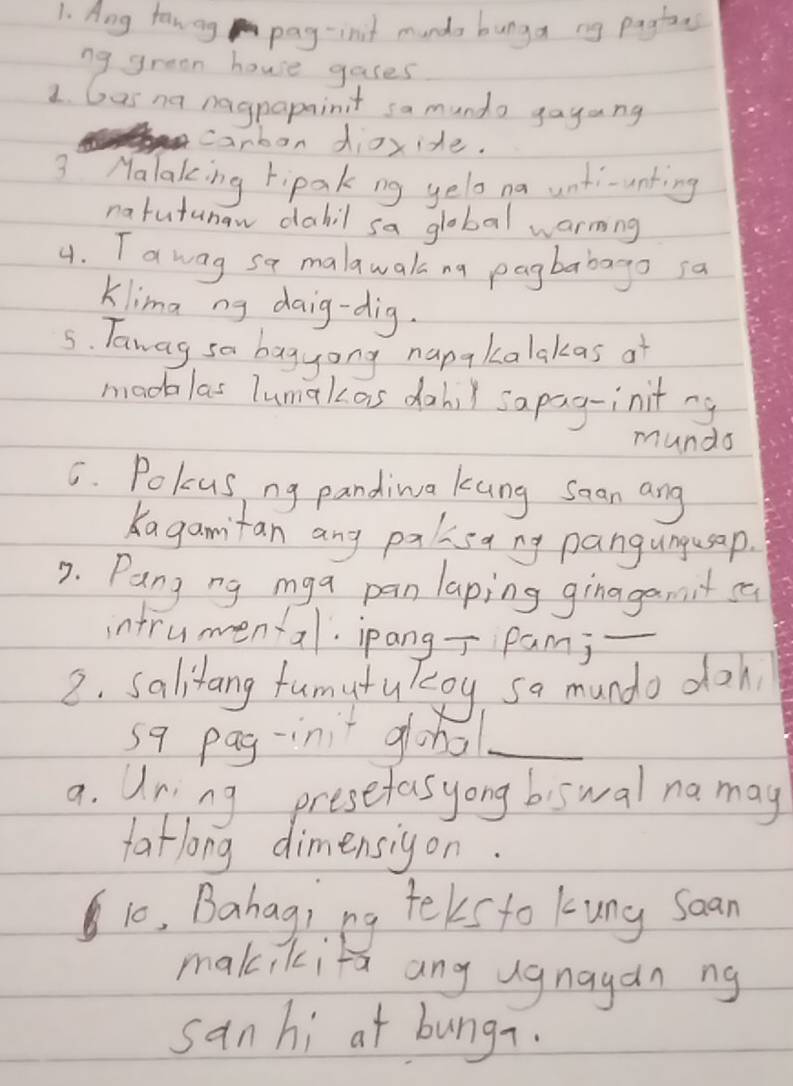 1. Ang tawag pag-init mundo bunga ng pagtaas
ng green house gases
2. Gas na nagpapainit sa mundo gayang
carbon dioxide.
3 Malaking tipak ng yelo na unti-unting
natutunaw dahil sa global warming
4. Tawag sa malawak na pagbabago sa
klima ng daig-dig.
5. Tawag sa bagyong napakalakas at
madalas lumalkas dahil sapag-init ng
mundo
6. Pokus ng pandiwa kung saan ang
kagamitan ang paksa ng pangungusap.
7. Pang ng mga pan laping ginagamit sa
intrumental. ipang - ipam; —
8. salitang tumutukoy sa mundo dahil
sa pag-init global ___
9. Uri ng presetasyong biswal na may
tatlong dimensiyon.
10. Bahagi ng teksto kung saan
makikita ang ugnayan ng
sanhi at bunga.